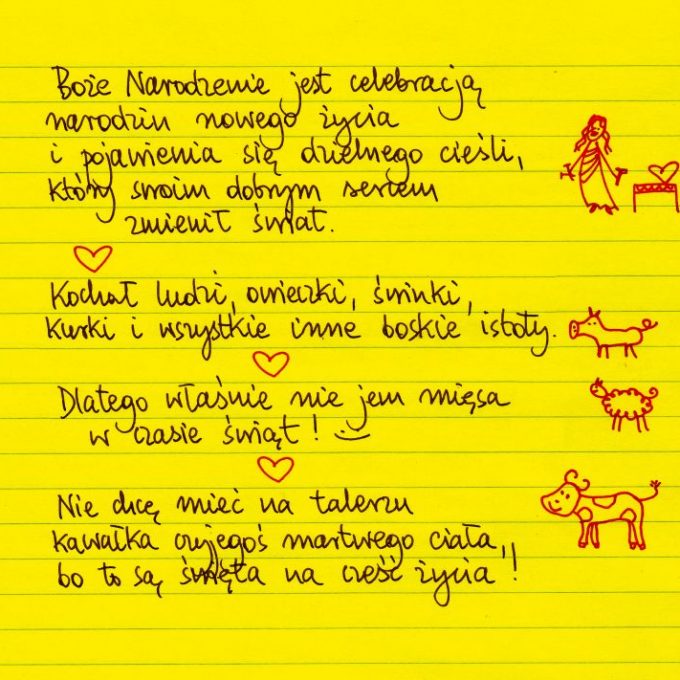 Boże Narodzenie jest celebracją
narodzin nowego życia
i pojawienia się dzielnego cieśli,
który swoim dobrym sercem
zmienił świat.
Kochał ludzi, owieczki, świnki,
kurki i wszystkie inne boskie istoty.
Dlatego właśnie nie jem mięsa
w czasie świąt! :-)
Nie chcę mieć na talerzu
kawałka czyjegoś martwego ciała,
bo to są święta na cześć życia!